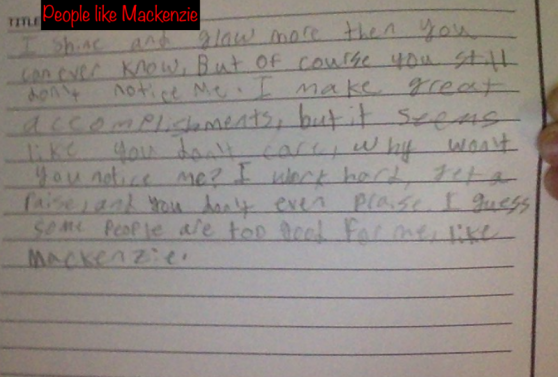 TITLE People like Mackenzie
I shine and glow more then you
can ever know, But of course you still
don't notice me. I make great
accomplishments, but it seems
like you don't care, why won't
you notice me? I work hard, get a
raise, and you don't even praise I guess
some people are too good for me, like
Mackenzie.